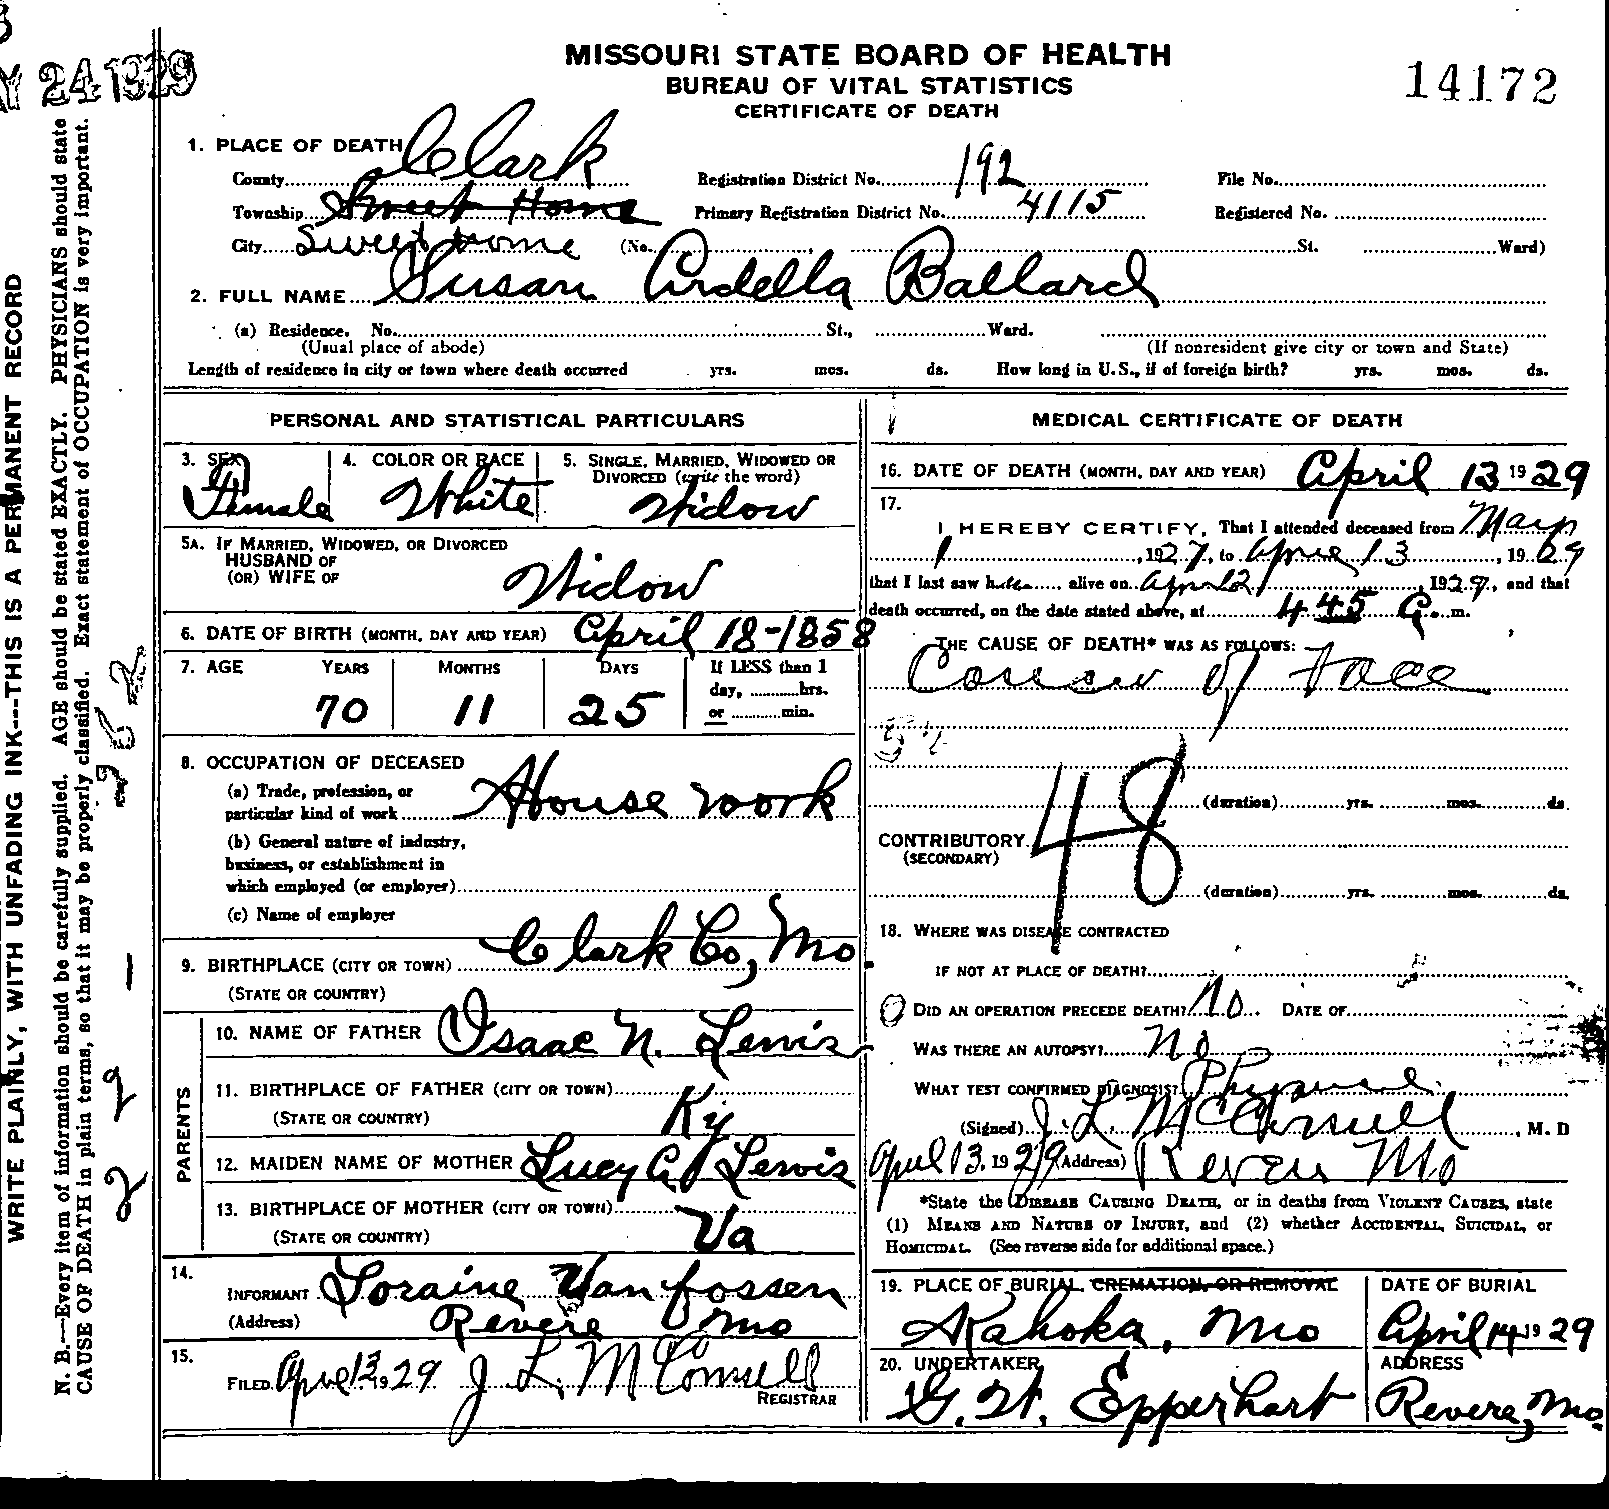 MAY 24 1929
MISSOURI STATE BOARD OF HEALTH
BUREAU OF VITAL STATISTICS
CERTIFICATE OF DEATH
14172
1. PLACE OF DEATH
County Clark Registration District No. 192 File No.
Township Sweet Home Primary Registration District No. 4115 Registered No.
City Sweet Home (No. St. Ward)
2. FULL NAME Susan Ardella Ballard
(a) Residence. No. St., Ward.
(Usual place of abode) (If nonresident give city or town and State)
Length of residence in city or town where death occurred yrs. mos. ds. How long in U.S., if of foreign birth? yrs. mos. ds.
PERSONAL AND STATISTICAL PARTICULARS
3. SEX 4. COLOR OR RACE 5. SINGLE, MARRIED, WIDOWED OR DIVORCED (write the word)
Female White Widow
5A. IF MARRIED, WIDOWED, OR DIVORCED
HUSBAND OF
(OR) WIFE OF Widow
6. DATE OF BIRTH (MONTH, DAY AND YEAR) April 18-1858
7. AGE YEARS MONTHS DAYS If LESS than 1
day, hrs.
70 11 25 or min.
8. OCCUPATION OF DECEASED
(a) Trade, profession, or
particular kind of work House work
(b) General nature of industry,
business, or establishment in
which employed (or employer)
(c) Name of employer
9. BIRTHPLACE (CITY OR TOWN) Clark Co, Mo.
(STATE OR COUNTRY)
PARENTS
10. NAME OF FATHER Isaac N. Lewis
11. BIRTHPLACE OF FATHER (CITY OR TOWN)
(STATE OR COUNTRY) Ky
12. MAIDEN NAME OF MOTHER Lucy A Lewis
13. BIRTHPLACE OF MOTHER (CITY OR TOWN)
(STATE OR COUNTRY) Va
14.
INFORMANT Loraine Van fossen
(Address) Revere Mo
15.
FILED April 13 1929 J L McConnell
REGISTRAR
MEDICAL CERTIFICATE OF DEATH
16. DATE OF DEATH (MONTH, DAY AND YEAR) April 13 1929
17.
I HEREBY CERTIFY, That I attended deceased from
1, 1927, to April 13, 1929
that I last saw h alive on April 12, 1929, and that
death occurred, on the date stated above, at 4 45 A. m.
THE CAUSE OF DEATH* WAS AS FOLLOWS:
Cancer of face
48
(duration) yrs. mos. ds.
CONTRIBUTORY
(SECONDARY)
(duration) yrs. mos. ds.
18. WHERE WAS DISEASE CONTRACTED
IF NOT AT PLACE OF DEATH?
DID AN OPERATION PRECEDE DEATH? No DATE OF
WAS THERE AN AUTOPSY? No
WHAT TEST CONFIRMED DIAGNOSIS? Physical
(Signed) J. L. McConnell, M. D
April 13. 1929 (Address) Revere Mo
*State the DISEASE CAUSING DEATH, or in deaths from VIOLENT CAUSES, state
(1) MEANS AND NATURE OF INJURY, and (2) whether ACCIDENTAL, SUICIDAL, or
HOMICIDAL. (See reverse side for additional space.)
19. PLACE OF BURIAL, CREMATION, OR REMOVAL DATE OF BURIAL
Kahoka, Mo April 14 1929
20. UNDERTAKER ADDRESS
G. W. Epperhart Revere, Mo.
WRITE PLAINLY, WITH UNFADING INK---THIS IS A PERMANENT RECORD
N. B.—Every item of information should be carefully supplied. AGE should be stated EXACTLY. PHYSICIANS should state
CAUSE OF DEATH in plain terms, so that it may be properly classified. Exact statement of OCCUPATION is very important.